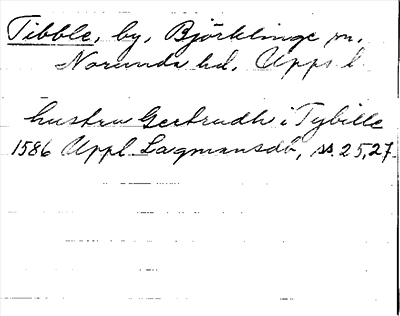 Tibble, by, Björklinge sn,
Norunda hd, Upps l
hustru Gertrudh i Tybille
1586 Uppl Lagmansdb, ss. 25, 27.